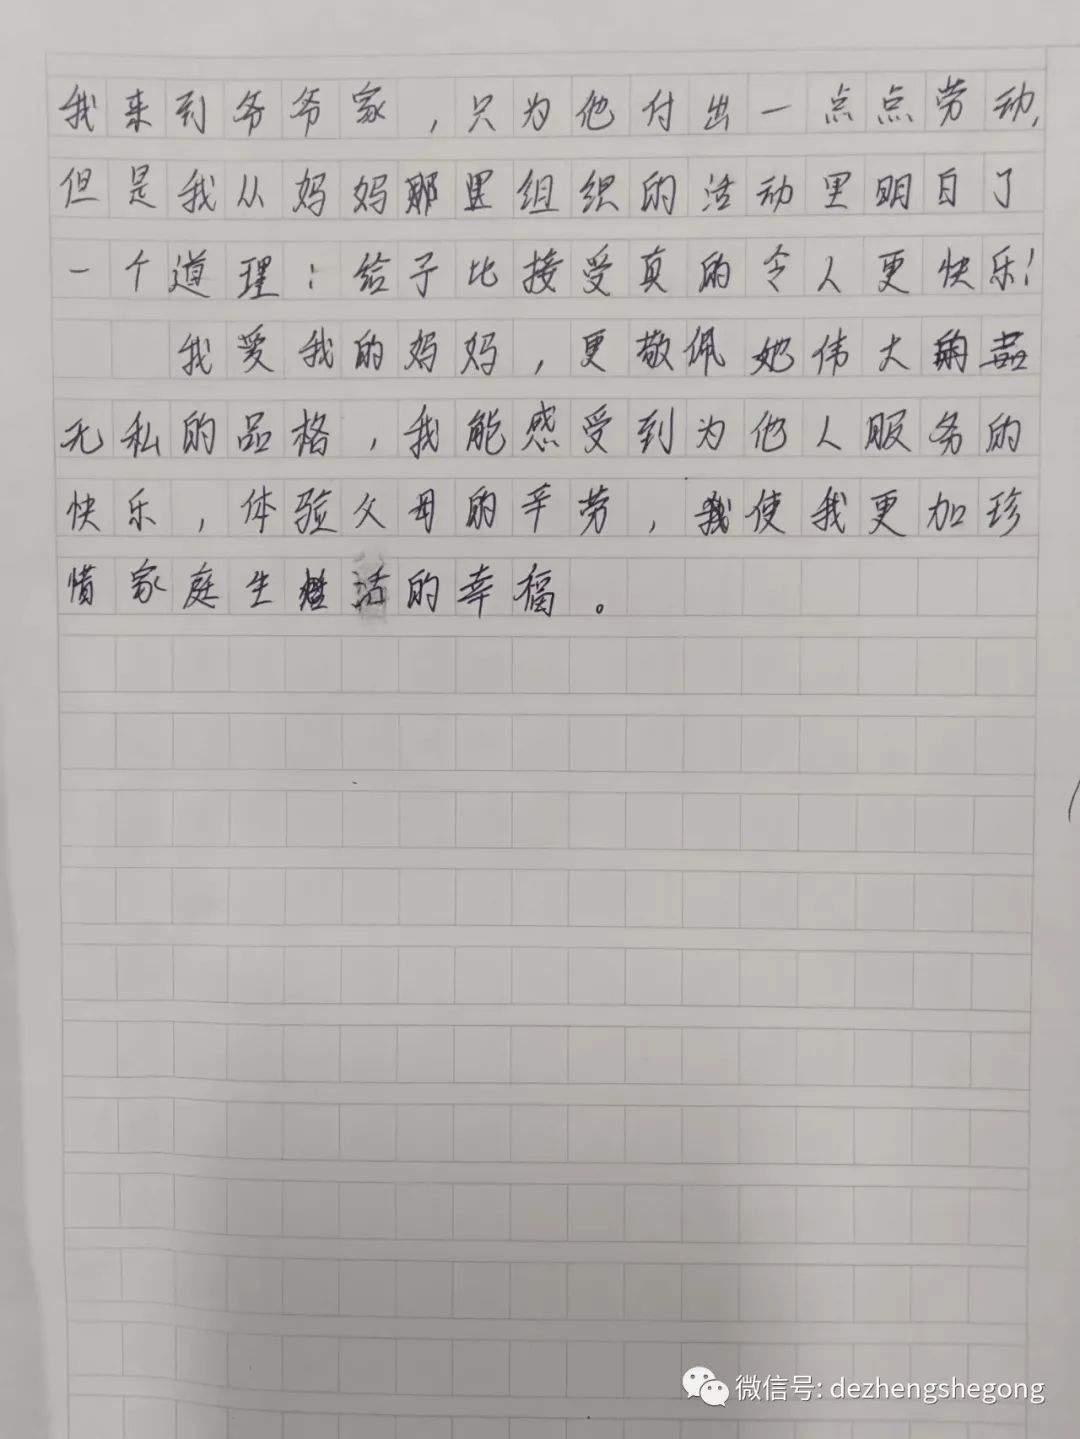 我来到爷爷家，只为他付出一点点劳动，
但是我从妈妈那里组织的活动里明白了
一个道理：给予比接受真的令人更快乐！
我爱我的妈妈，更敬佩她伟大
无私的品格，我能感受到为他人服务的
快乐，体验父母的辛劳，使我更加珍
惜家庭生活的幸福。
微信号: dezhengshegong